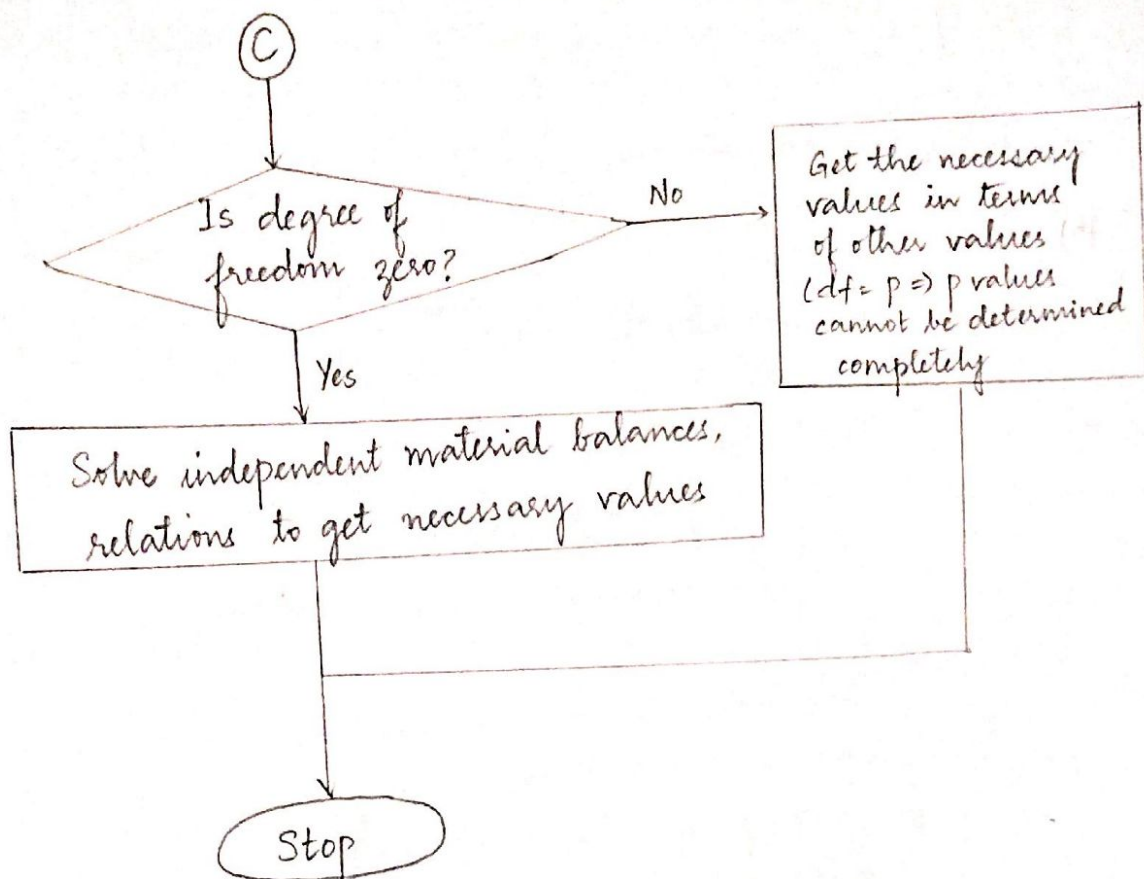 C
Is degree of
freedom zero?
No
Get the necessary
values in terms
of other values
(df = p => p values
cannot be determined
completely
Yes
Solve independent material balances,
relations to get necessary values
Stop